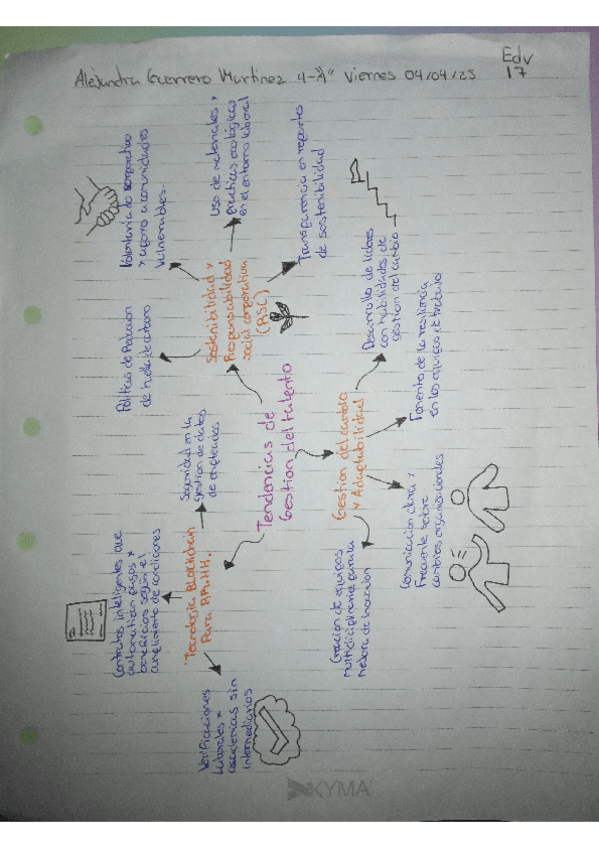 Alejandra Guerrero Martinez 4-"A" Viernes 04/04/25
Edv
17
Tendencias de
Gestion del talento
Sostenibilidad y
Responsabilidad
social corporativa
(RSC)
Politicas de Reduccion
de huella de carbono
Voluntariado corporativo
y apoyo a comunidades
vulnerables.
Uso de materiales y
practicas ecológicas
en el entorno laboral
Transparencia en reportes
de sostenibilidad
Gestion del cambio
y Adaptabilidad
Desarrollo de lideres
con habilidades de
gestion del cambio
Fomento de la resiliencia
en los equipos de trabajo
Comunicacion clara y
Frecuente sobre
cambios organizacionales
Creacion de equipos
multidiciplinarios para la
mejora de inovacion
Tecnologia Blockchain
Para RR.HH.
Seguridad en la
Gestion de datos
de empleados
Contratos inteligentes que
automatizan pagos y
beneficios según el
cumplimiento de condiciones
Verificaciones
laborales y
academicas sin
Intermediarios
KYMA